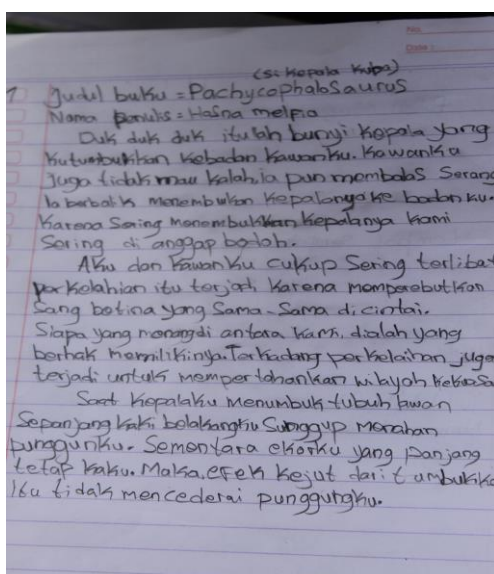 No:
Date:
(si kepala kuba)
1 Judul buku = Pachycophalosaurus
Nama penulis = Hasna melpia
Duk duk duk itulah bunyi kepala yang
kutumbukkan kebadan kawanku. Kawanku
Juga tidak mau kalah ia pun membalas Serang
Ia berbalik menembukan kepalanya ke badanku.
Karena Sering menembukkan kepalanya kami
Sering di anggap bodoh.
Aku dan kawanku cukup Sering terlibat
perkelahian itu terjadi karena memperebutkan
Sang betina yang Sama-Sama dicintai.
Siapa yang menangdi antara kami, dialah yang
berhak memilikinya. Terkadang perkelaihan juga
terjadi untuk mempertahankan wilayah kekuasa
Saat kepalaku menumbuk tubuh lawan
Sepanjang kaki belakangku Sunggup menahan
punggunku. Sementara ekorku yang panjang
tetap kaku. Maka, efek kejut dari tumbukka
itu tidak mencederai punggungku.